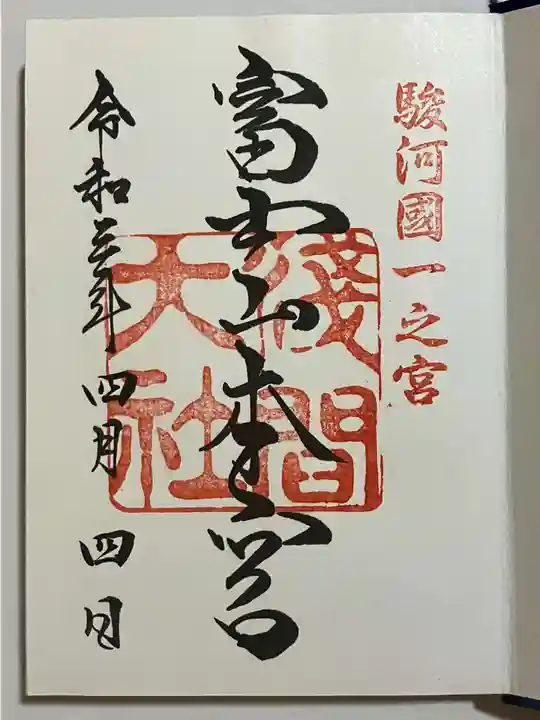 駿河國一之宮
富士山本宮
淺間大社
令和三年 四月 四日